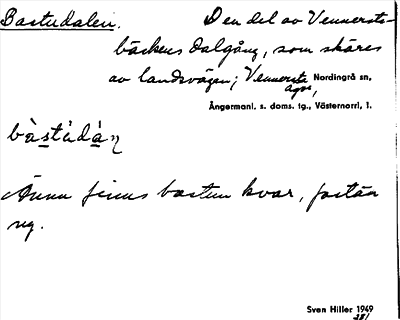 Bastudalen. Den del av Vennersta-
bäckens dalgång, som skäres
av landsvägen; Vennersta
ägor, Nordingrå sn,
Ångermanl. s. doms. tg., Västernorrl. l.
Ännu finns bastun kvar, fastän
ny.
Sven Hiller 1949